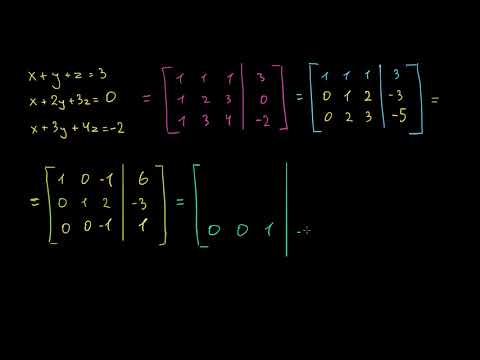 x + y + z = 3
x + 2y + 3z = 0
x + 3y + 4z = -2
= [ 1 1 1 | 3
1 2 3 | 0
1 3 4 | -2 ]
= [ 1 1 1 | 3
0 1 2 | -3
0 2 3 | -5 ] =
= [ 1 0 -1 | 6
0 1 2 | -3
0 0 -1 | 1 ]
= [
0 0 1 | -